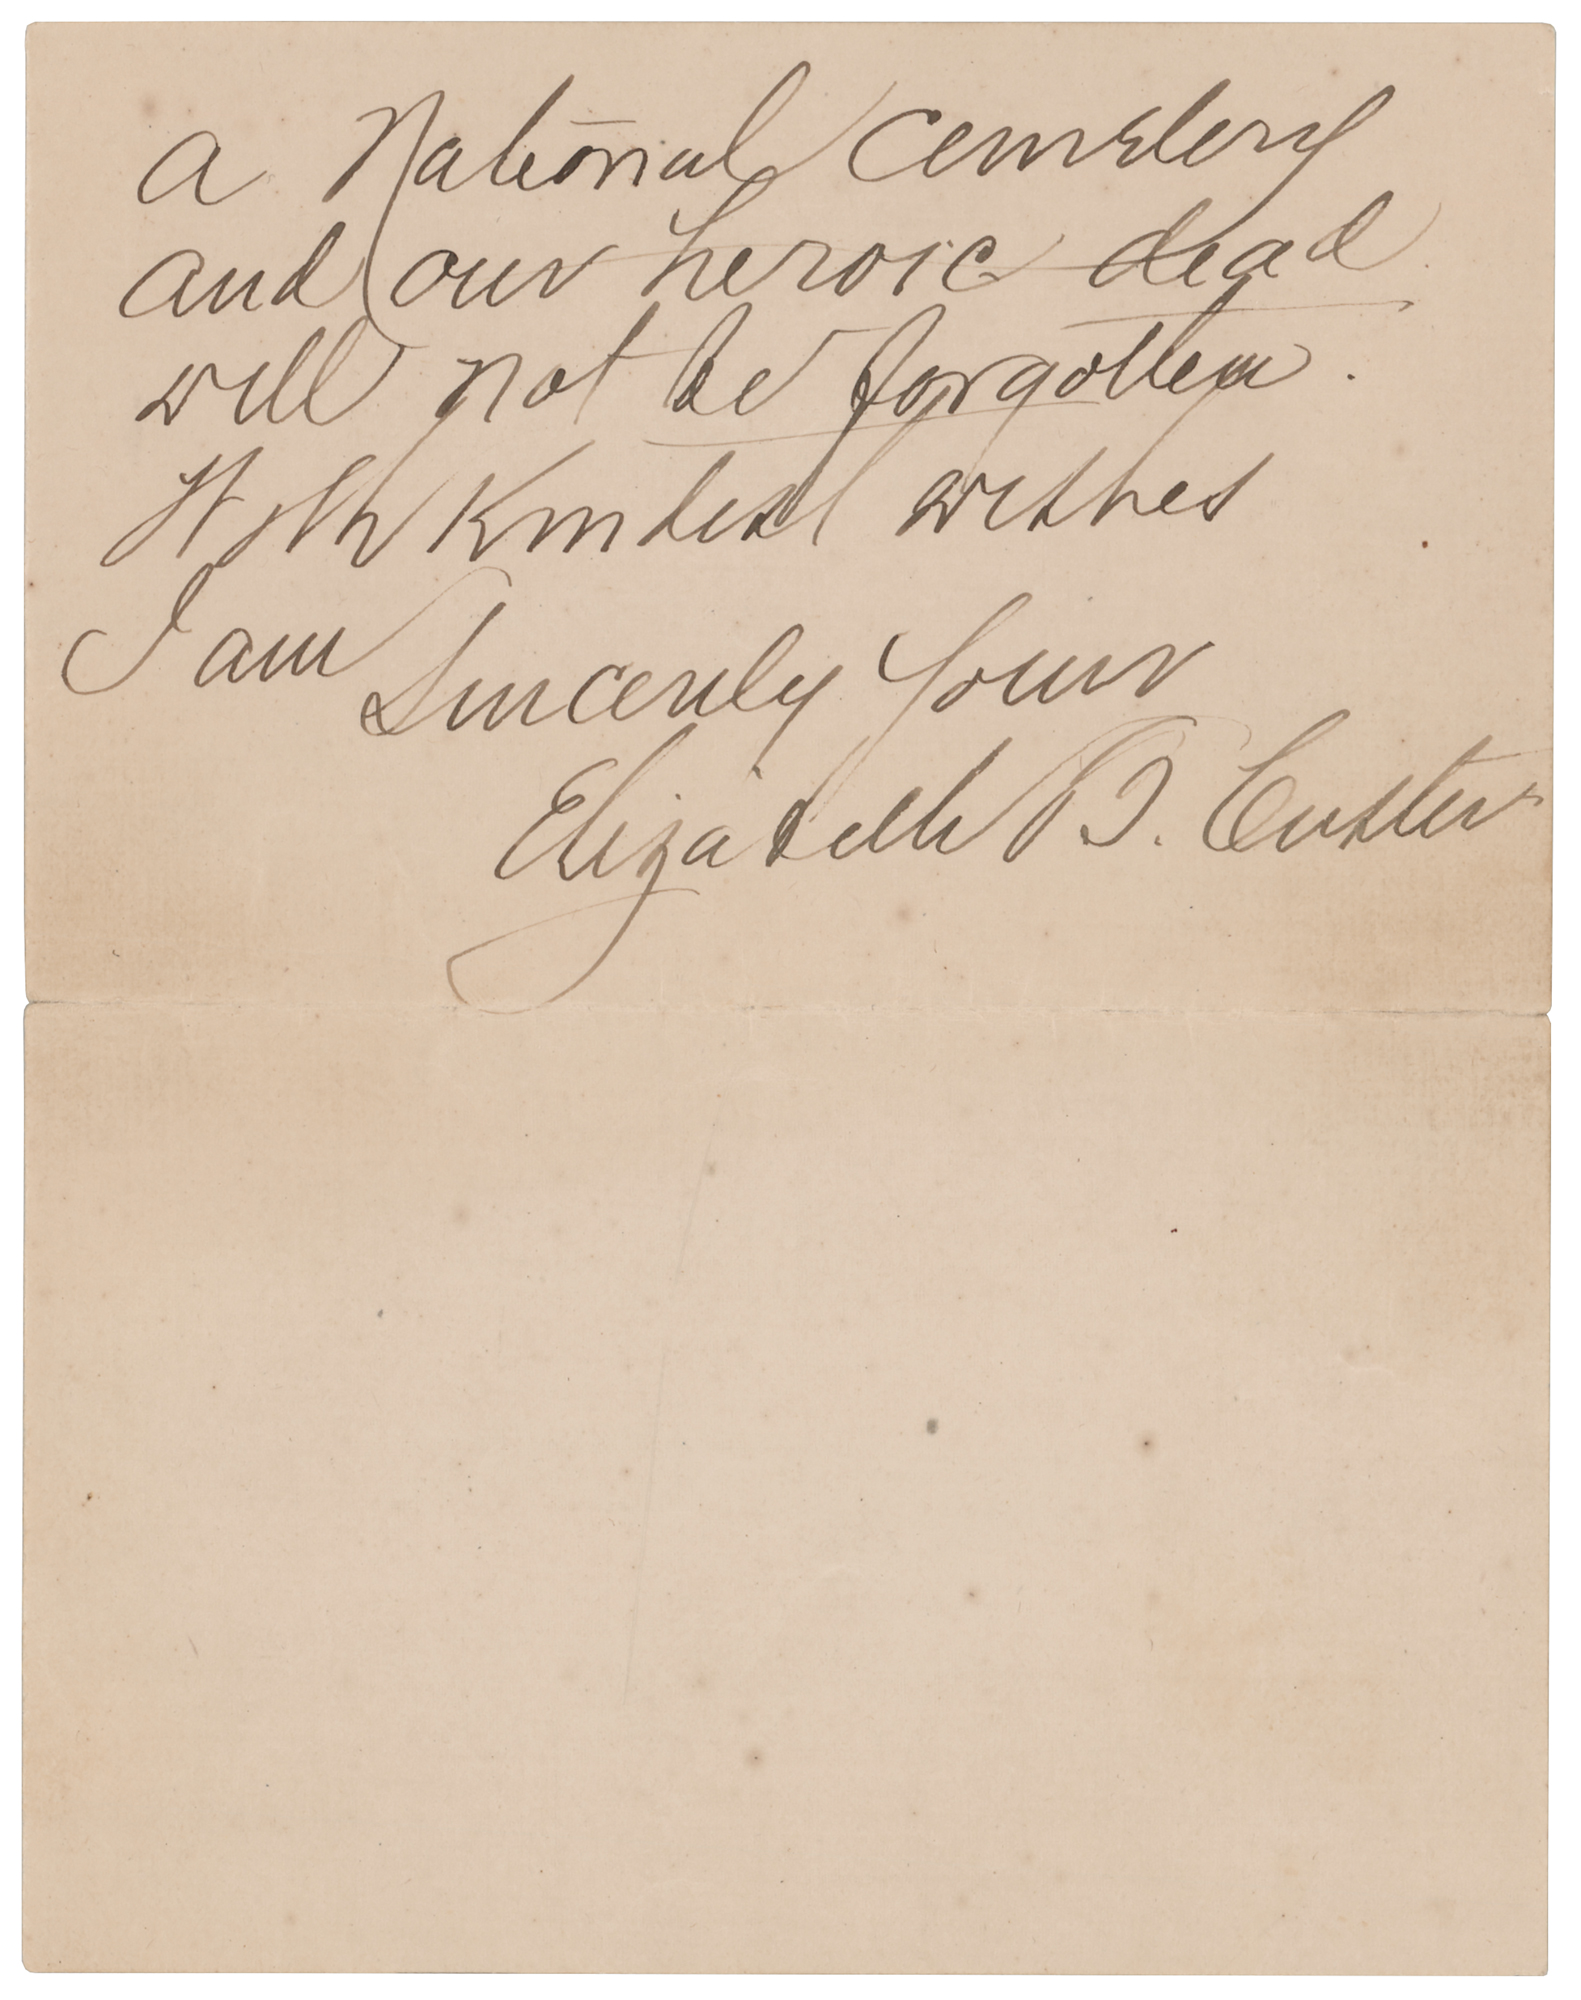 a National Cemetery
and our heroic dead
will not be forgotten.
With kindest wishes
I am
Sincerely Yours
Elizabeth B. Custer